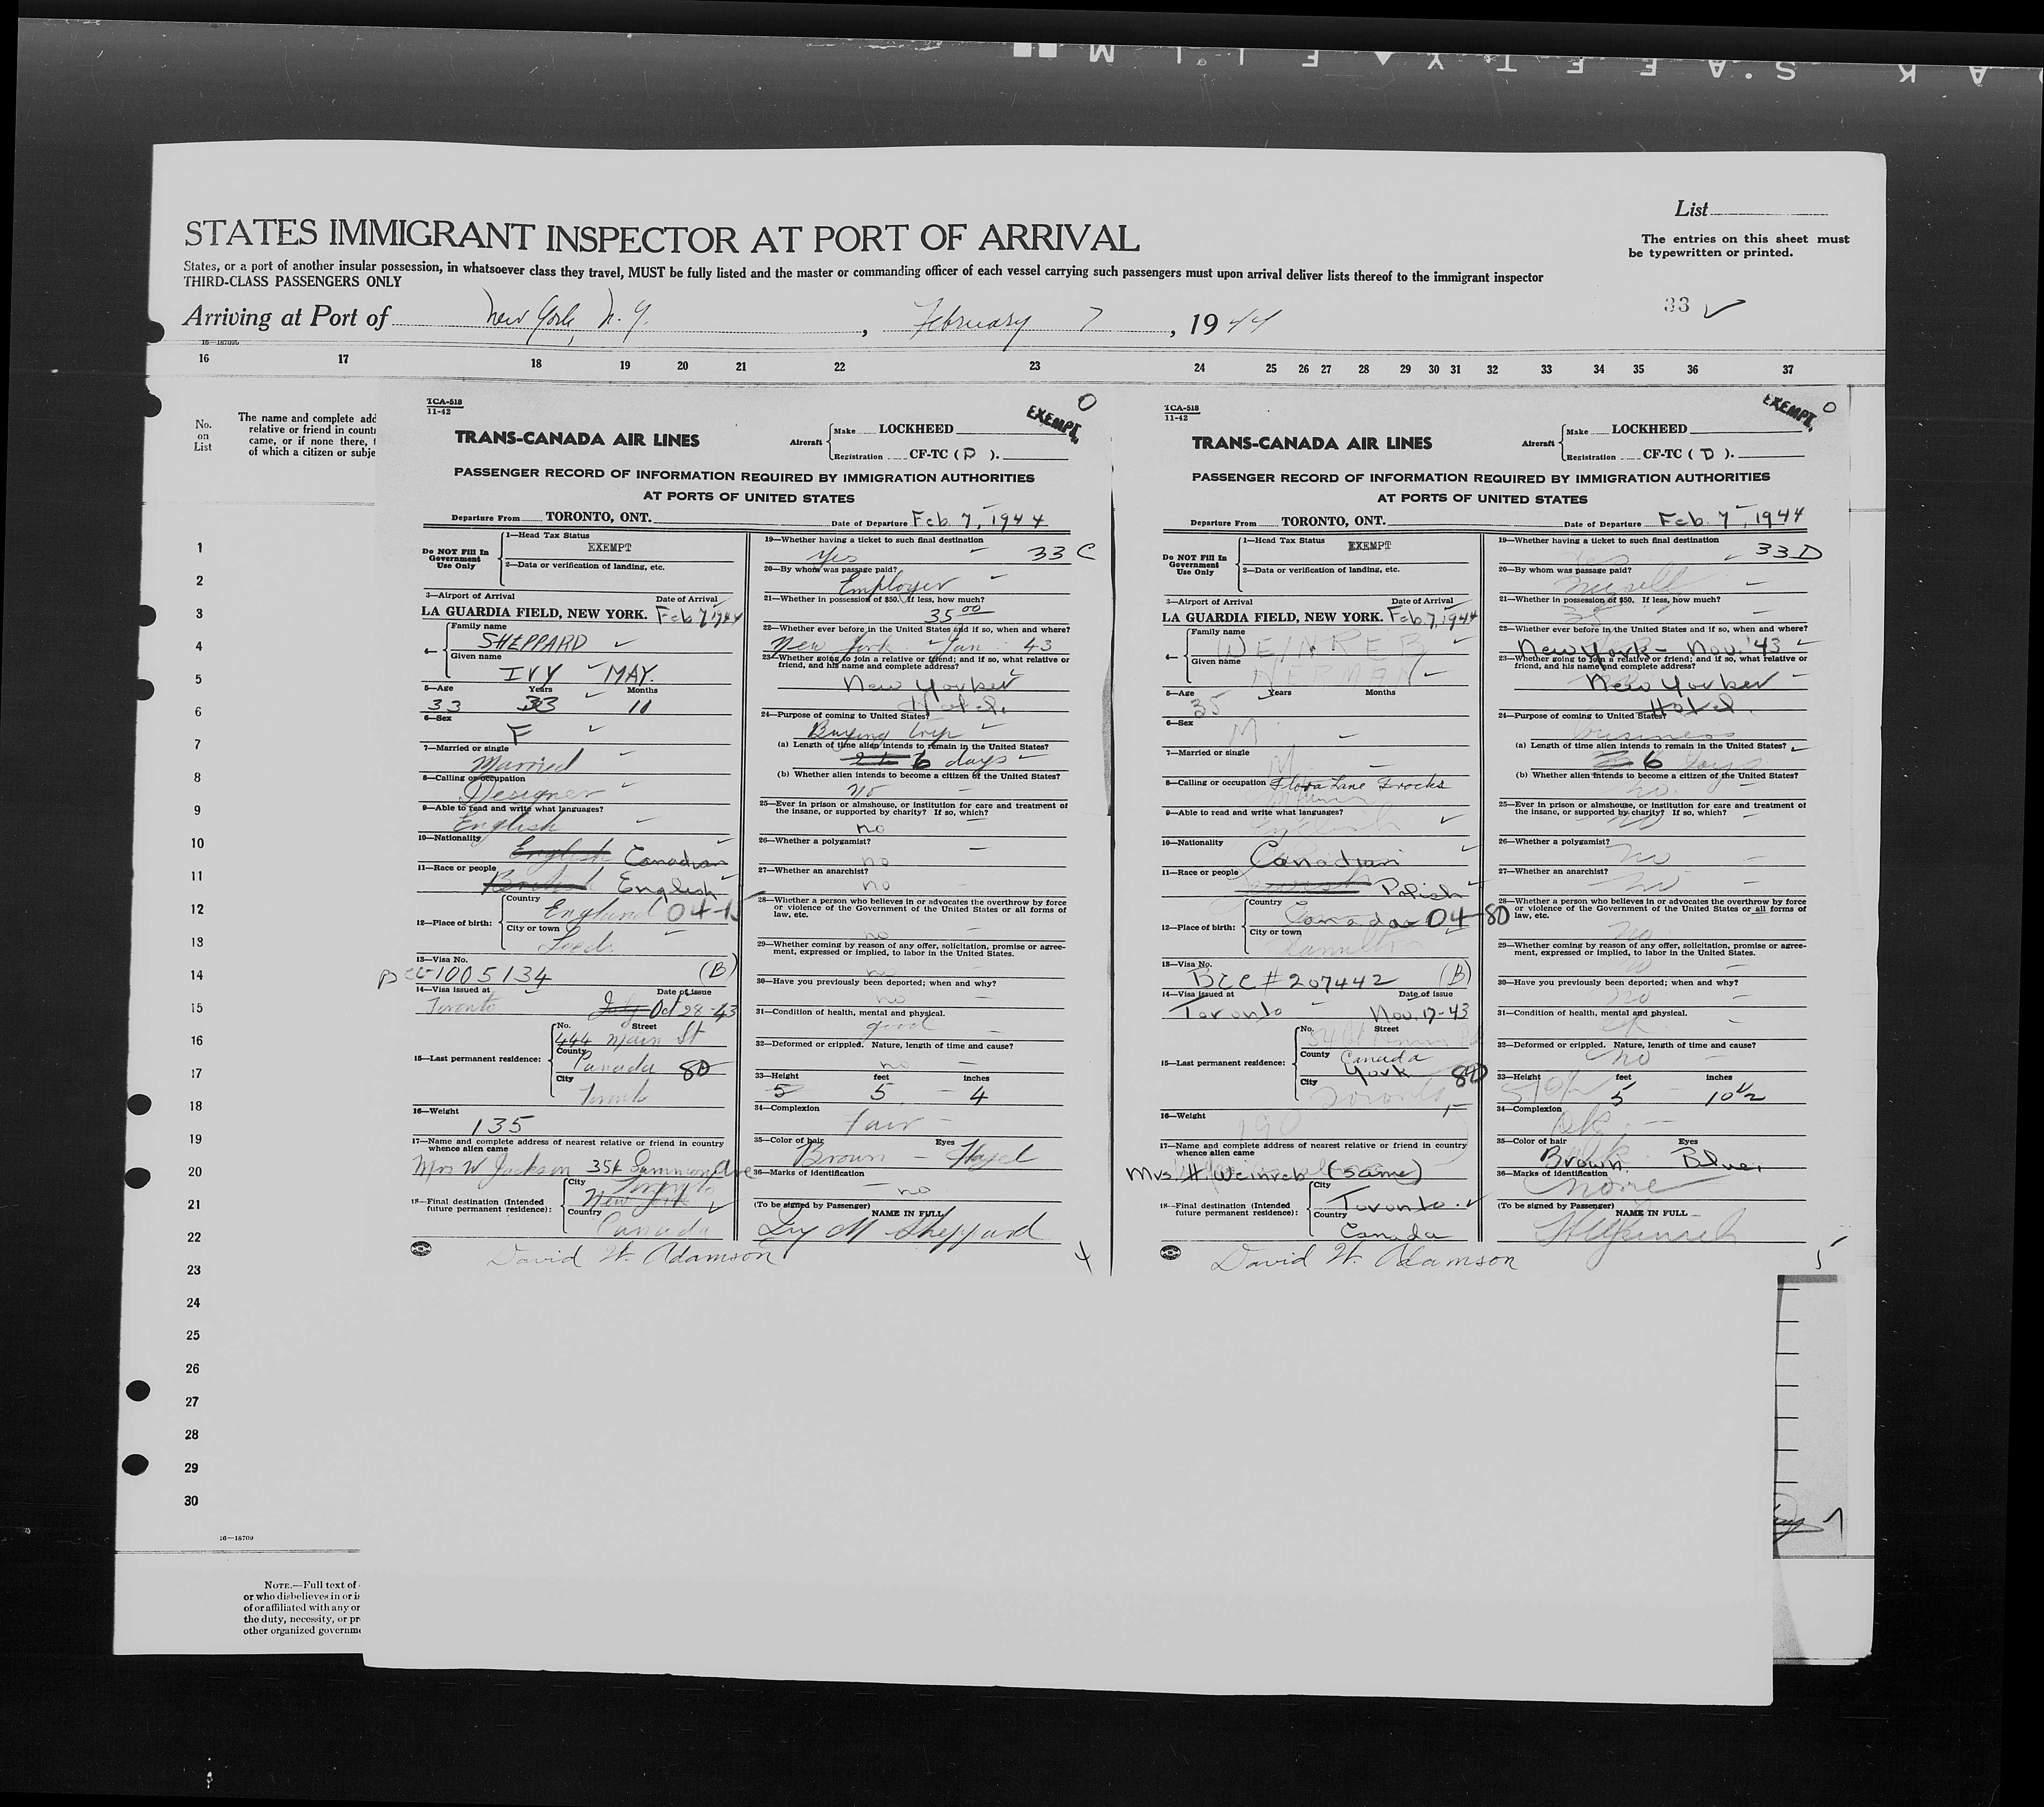 SAFETY FILM
List
STATES IMMIGRANT INSPECTOR AT PORT OF ARRIVAL
The entries on this sheet must
be typewritten or printed.
States, or a port of another insular possession, in whatsoever class they travel, MUST be fully listed and the master or commanding officer of each vessel carrying such passengers must upon arrival deliver lists thereof to the immigrant inspector
THIRD-CLASS PASSENGERS ONLY
Arriving at Port of New York, N. Y., February 7, 1944
33
16 17 18 19 20 21 22 23 24 25 26 27 28 29 30 31 32 33 34 35 36 37
No.
on
List
The name and complete add
relative or friend in countr
came, or if none there,
of which a citizen or subje
1
2
3
4
5
6
7
8
9
10
11
12
13
14
15
16
17
18
19
20
21
22
23
24
25
26
27
28
29
30
16—18709
NOTE.—Full text of
or who disbelieves in or i
of or affiliated with any or
the duty, necessity, or pr
other organized governme
TCA-518
11-42
EXEMPT.
TRANS-CANADA AIR LINES
Aircraft
Make LOCKHEED
Registration CF-TC ( D ).
PASSENGER RECORD OF INFORMATION REQUIRED BY IMMIGRATION AUTHORITIES
AT PORTS OF UNITED STATES
Departure From TORONTO, ONT. Date of Departure Feb. 7, 1944
Do NOT Fill In
Government
Use Only
1—Head Tax Status
EXEMPT
2—Data or verification of landing, etc.
3—Airport of Arrival Date of Arrival
LA GUARDIA FIELD, NEW YORK. Feb 7 1944
4—
Family name
SHEPPARD
Given name
IVY MAY.
5—Age Years Months
33 33 11
6—Sex
F
7—Married or single
Married
8—Calling or occupation
Designer
9—Able to read and write what languages?
English
10—Nationality
English Canadian
11—Race or people
British English
12—Place of birth:
Country
England 04-15
City or town
Leeds
13—Visa No.
BCC 1005134 (B)
14—Visa issued at Date of issue
Toronto July Oct 28-43
15—Last permanent residence:
No. Street
444 Main St
County
Canada 80
City
Toronto
16—Weight
135
17—Name and complete address of nearest relative or friend in country
whence alien came
Mrs W Jackson 354 Sammon Ave
Toronto
18—Final destination (Intended
future permanent residence):
City
New York
Country
Canada
David W. Adamson
19—Whether having a ticket to such final destination
Yes 33 C
20—By whom was passage paid?
Employer
21—Whether in possession of $50. If less, how much?
35 00
22—Whether ever before in the United States and if so, when and where?
New York Jan 43
23—Whether going to join a relative or friend; and if so, what relative or
friend, and his name and complete address?
New Yorker
Hotel.
24—Purpose of coming to United States?
Buying trip
(a) Length of time alien intends to remain in the United States?
6 days
(b) Whether alien intends to become a citizen of the United States?
no
25—Ever in prison or almshouse, or institution for care and treatment of
the insane, or supported by charity? If so, which?
no
26—Whether a polygamist?
no
27—Whether an anarchist?
no
28—Whether a person who believes in or advocates the overthrow by force
or violence of the Government of the United States or all forms of
law, etc.
no
29—Whether coming by reason of any offer, solicitation, promise or agree-
ment, expressed or implied, to labor in the United States.
no
30—Have you previously been deported; when and why?
no
31—Condition of health, mental and physical.
good
32—Deformed or crippled. Nature, length of time and cause?
no
33—Height feet inches
5 5 4
34—Complexion
Fair
35—Color of hair Eyes
Brown — Hazel
36—Marks of identification
no
(To be signed by Passenger) NAME IN FULL
Ivy M Sheppard
TCA-518
11-42
EXEMPT.
TRANS-CANADA AIR LINES
Aircraft
Make LOCKHEED
Registration CF-TC ( D ).
PASSENGER RECORD OF INFORMATION REQUIRED BY IMMIGRATION AUTHORITIES
AT PORTS OF UNITED STATES
Departure From TORONTO, ONT. Date of Departure Feb. 7, 1944
Do NOT Fill In
Government
Use Only
1—Head Tax Status
EXEMPT
2—Data or verification of landing, etc.
3—Airport of Arrival Date of Arrival
LA GUARDIA FIELD, NEW YORK. Feb 7, 1944
4—
Family name
WEINREB
Given name
HERMAN
5—Age Years Months
35
6—Sex
M
7—Married or single
M
8—Calling or occupation Flora Lane Frocks
9—Able to read and write what languages?
English
10—Nationality
Canadian
11—Race or people
Polish
12—Place of birth:
Country
Canada 04-80
City or town
Hamilton
13—Visa No.
BCC # 207442 (B)
14—Visa issued at Date of issue
Toronto Nov. 17-43
15—Last permanent residence:
No. Street
County Canada
York 80
City
Toronto
16—Weight
190
17—Name and complete address of nearest relative or friend in country
whence alien came
Mrs. H. Weinreb (same)
18—Final destination (Intended
future permanent residence):
City
Toronto.
Country
Canada
David W. Adamson
19—Whether having a ticket to such final destination
Yes 33 D
20—By whom was passage paid?
Myself
21—Whether in possession of $50. If less, how much?
35
22—Whether ever before in the United States and if so, when and where?
New York - Nov. '43
23—Whether going to join a relative or friend; and if so, what relative or
friend, and his name and complete address?
New Yorker
Hotel.
24—Purpose of coming to United States?
business
(a) Length of time alien intends to remain in the United States?
6 days
(b) Whether alien intends to become a citizen of the United States?
no.
25—Ever in prison or almshouse, or institution for care and treatment of
the insane, or supported by charity? If so, which?
no
26—Whether a polygamist?
no
27—Whether an anarchist?
no
28—Whether a person who believes in or advocates the overthrow by force
or violence of the Government of the United States or all forms of
law, etc.
no
29—Whether coming by reason of any offer, solicitation, promise or agree-
ment, expressed or implied, to labor in the United States.
no
30—Have you previously been deported; when and why?
no
31—Condition of health, mental and physical.
32—Deformed or crippled. Nature, length of time and cause?
no
33—Height feet inches
5 10½ 5 10 ½
34—Complexion
Dk.
35—Color of hair Eyes
Brown. Blue.
36—Marks of identification
none
(To be signed by Passenger) NAME IN FULL
H Weinreb